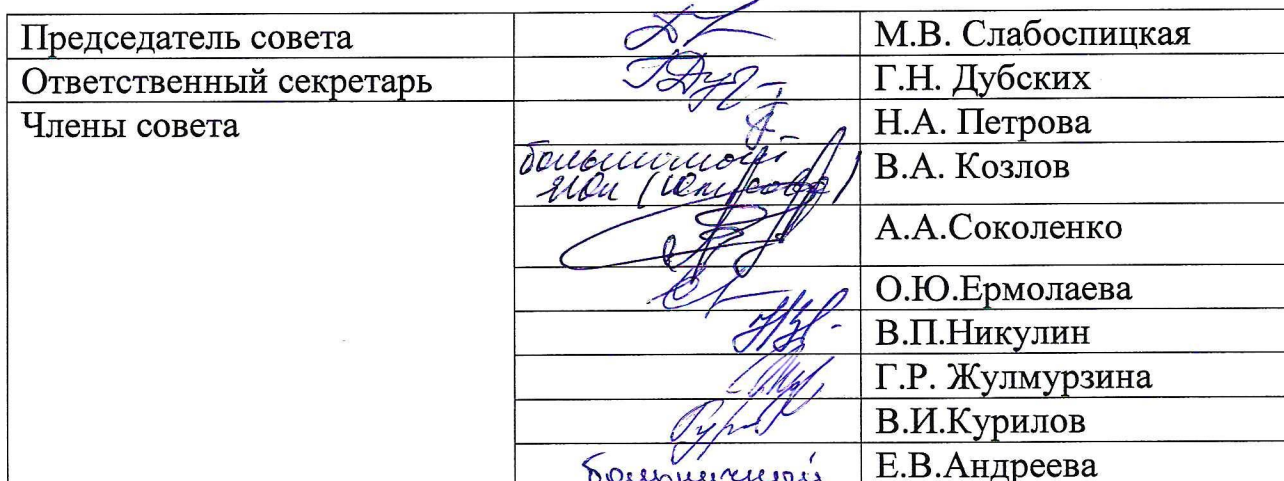 Председатель совета М.В. Слабоспицкая
Ответственный секретарь Г.Н. Дубских
Члены совета Н.А. Петрова
В.А. Козлов
А.А.Соколенко
О.Ю.Ермолаева
В.П.Никулин
Г.Р. Жулмурзина
В.И.Курилов
больничный Е.В.Андреева